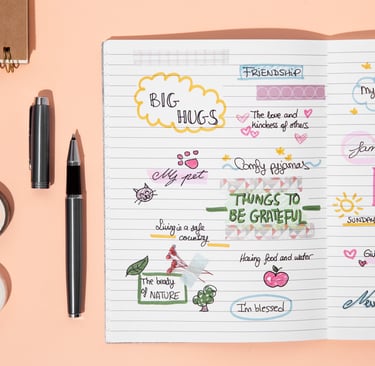 FRIENDSHIP
BIG
HUGS
The love and
kindness of others.
My
My pet
Comfy pyjamas
THINGS TO
BE GRATEFUL
SUNDAY
Living is a safe
country
Having food and water
The beauty
of NATURE
I'm blessed